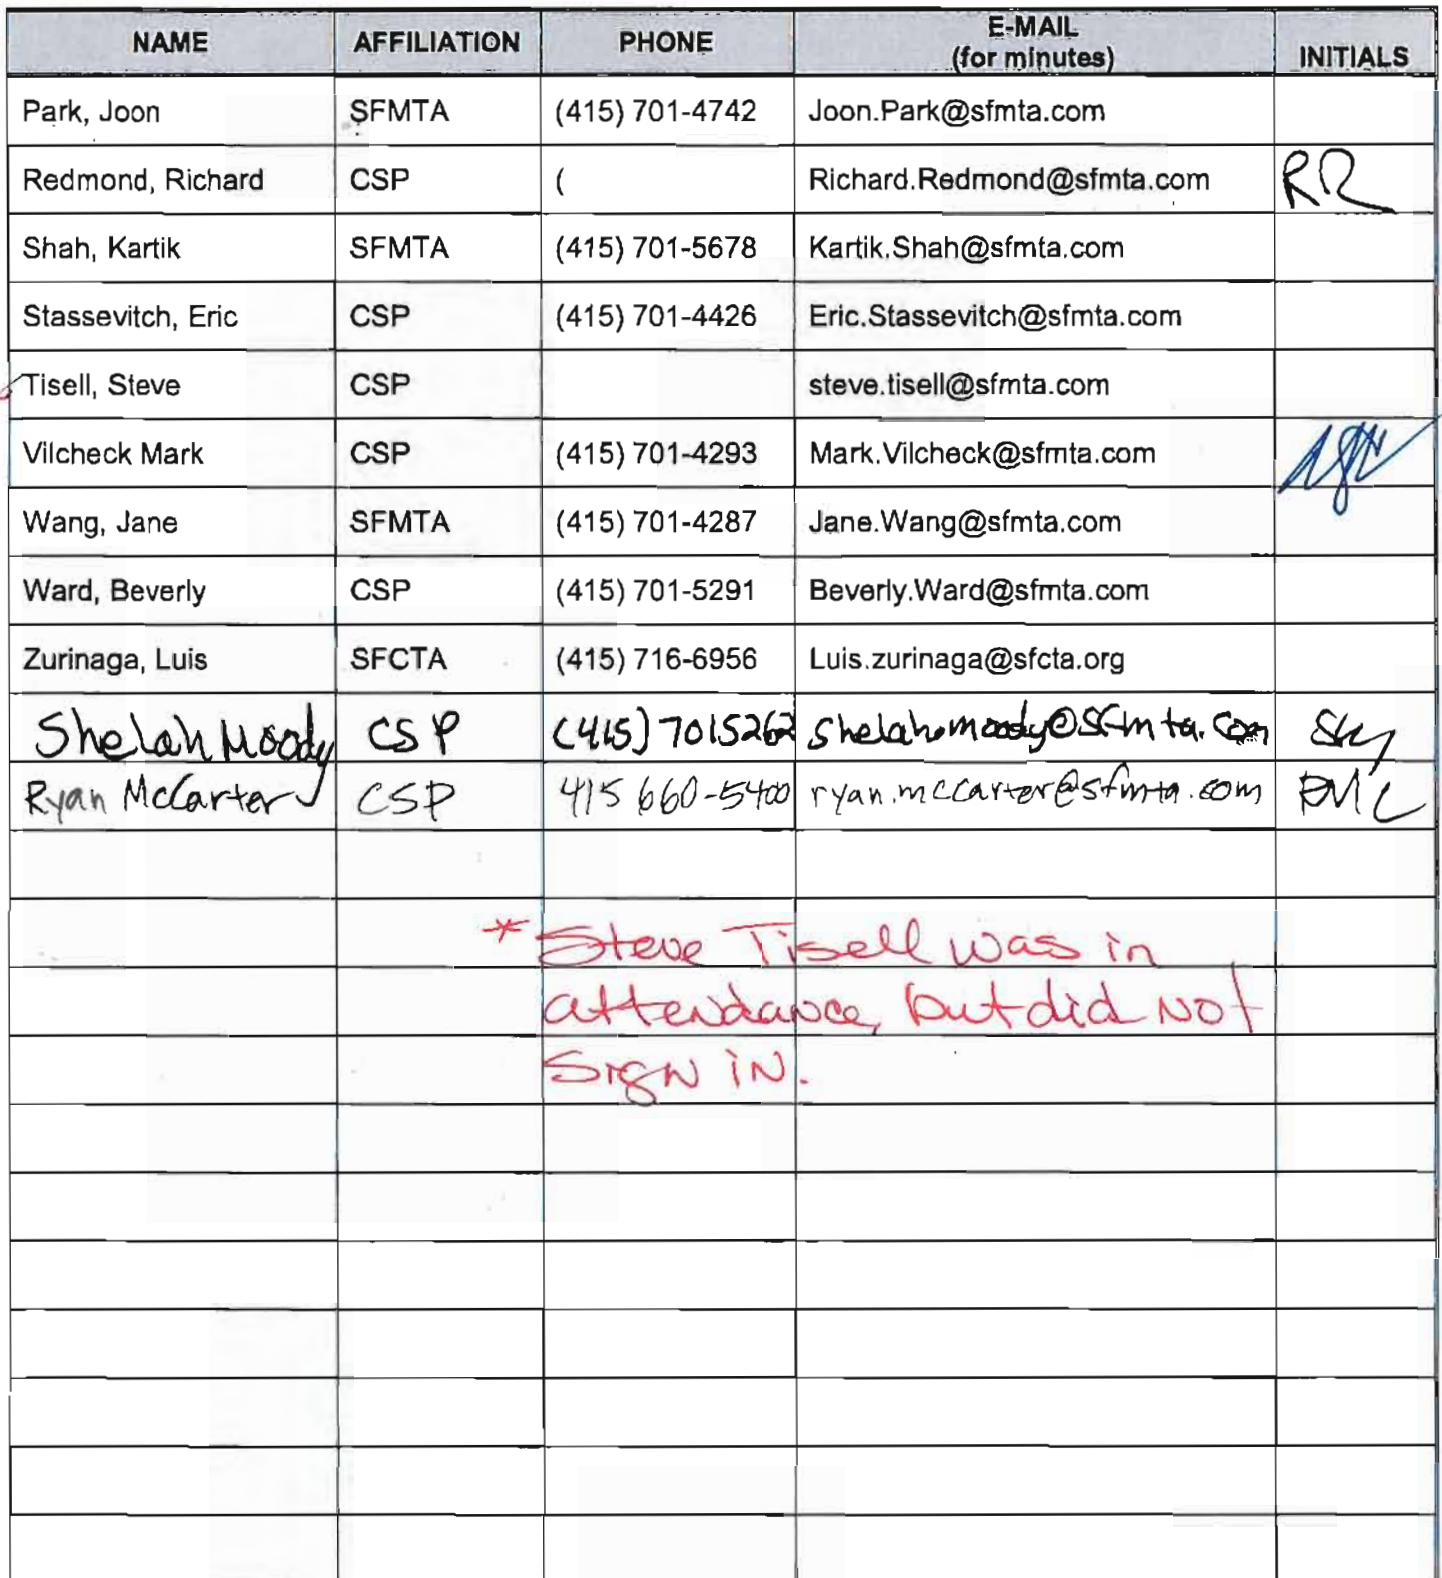 NAME AFFILIATION PHONE E-MAIL (for minutes) INITIALS
Park, Joon SFMTA (415) 701-4742 Joon.Park@sfmta.com
Redmond, Richard CSP ( Richard.Redmond@sfmta.com RR
Shah, Kartik SFMTA (415) 701-5678 Kartik.Shah@sfmta.com
Stassevitch, Eric CSP (415) 701-4426 Eric.Stassevitch@sfmta.com
Tisell, Steve CSP steve.tisell@sfmta.com
Vilcheck Mark CSP (415) 701-4293 Mark.Vilcheck@sfmta.com
Wang, Jane SFMTA (415) 701-4287 Jane.Wang@sfmta.com
Ward, Beverly CSP (415) 701-5291 Beverly.Ward@sfmta.com
Zurinaga, Luis SFCTA (415) 716-6956 Luis.zurinaga@sfcta.org
Shelah Moody CSP (415) 7015262 shelah.moody@sfmta.com
Ryan McCarter CSP 415 660-5400 ryan.mccarter@sfmta.com RMC
* Steve Tisell was in
attendance, but did not
sign in.